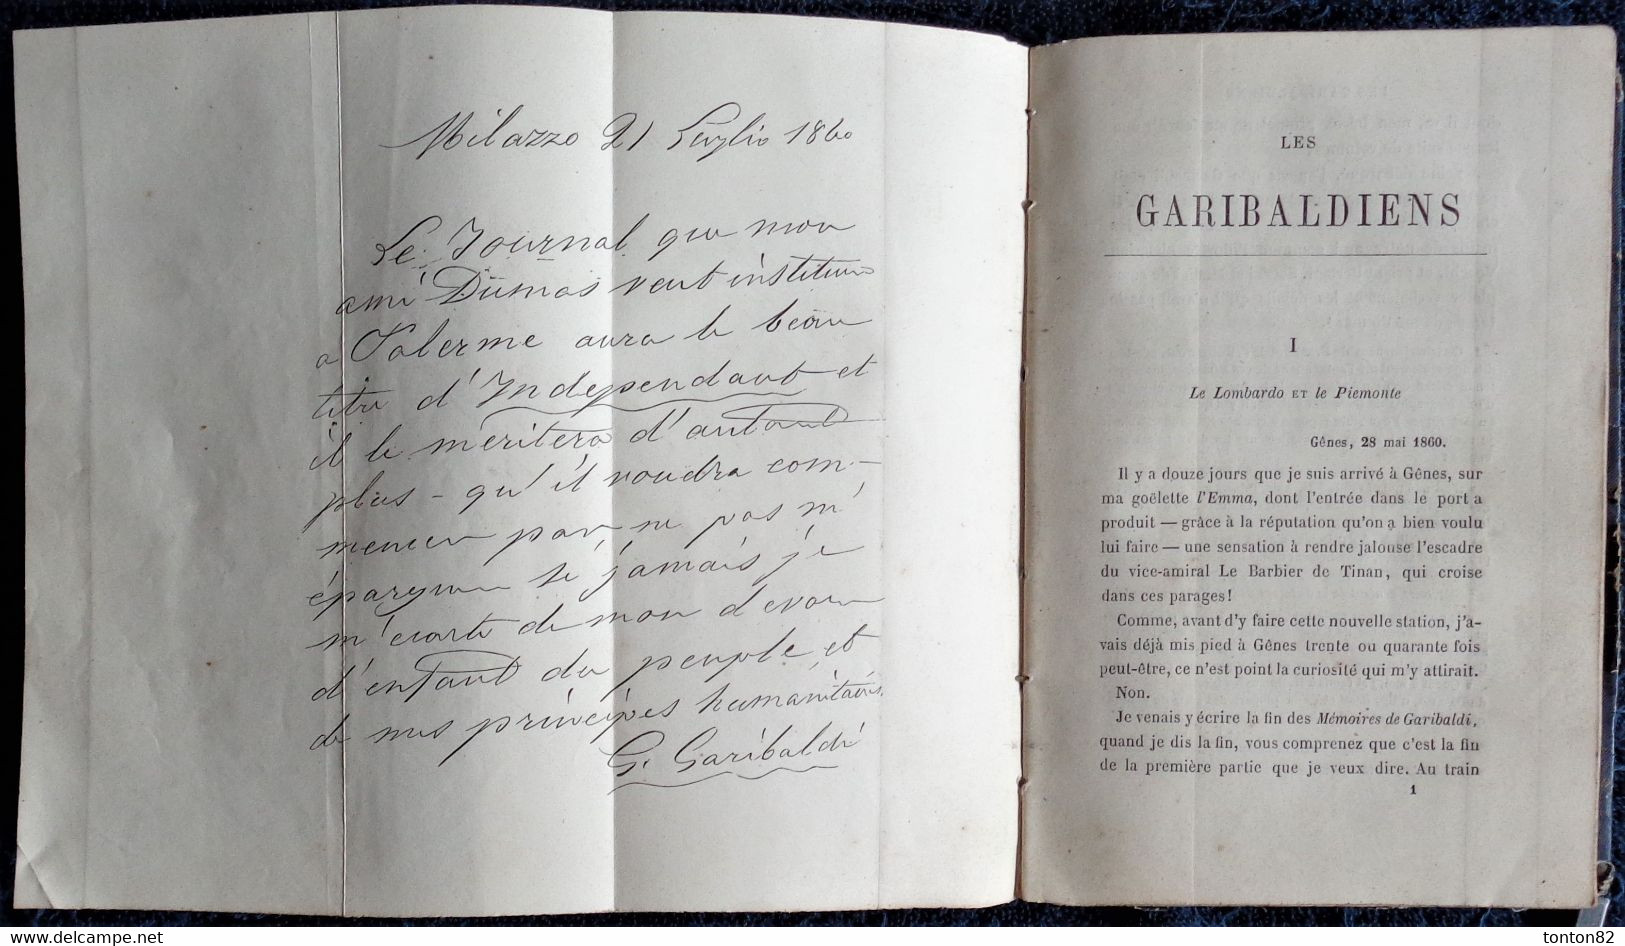 Milazzo 21 Luglio 1860
Le Journal que mon
ami Dumas veut instituer
a Palerme aura le beau
titre d'Independant et
il le meritera d'autant
plus - qu'il voudra com-
mencer par ne pas m'
épargner si jamais je
m'ecarte de mon devoir
d'enfant du peuple et
de mes principes humanitaires.
G. Garibaldi
LES
GARIBALDIENS
I
Le Lombardo ET le Piemonte
Gênes, 28 mai 1860.
Il y a douze jours que je suis arrivé à Gênes, sur
ma goëlette l'Emma, dont l'entrée dans le port a
produit — grâce à la réputation qu'on a bien voulu
lui faire — une sensation à rendre jalouse l'escadre
du vice-amiral Le Barbier de Tinan, qui croise
dans ces parages!
Comme, avant d'y faire cette nouvelle station, j'a-
vais déjà mis pied à Gênes trente ou quarante fois
peut-être, ce n'est point la curiosité qui m'y attirait.
Non.
Je venais y écrire la fin des Mémoires de Garibaldi,
quand je dis la fin, vous comprenez que c'est la fin
de la première partie que je veux dire. Au train
1
tonton82